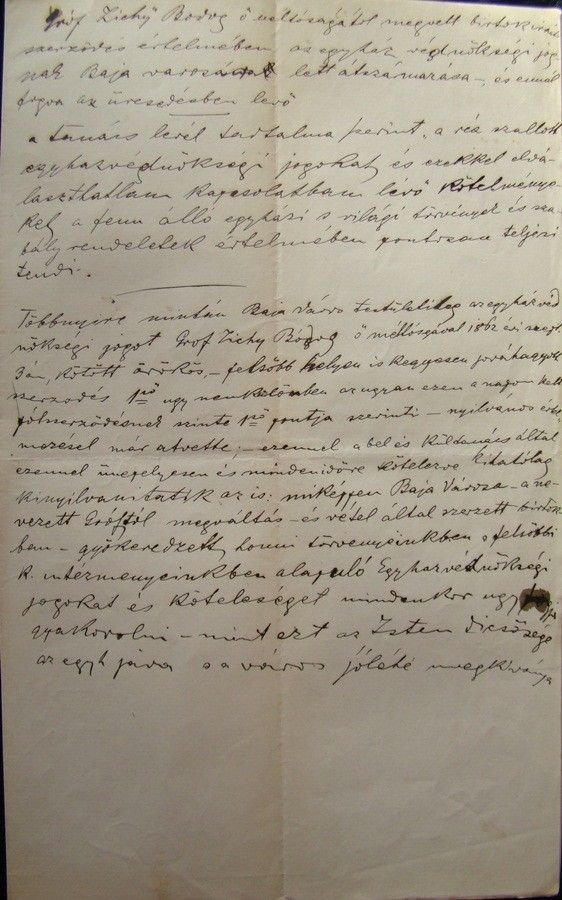 Gróf Zichÿ Bodog ő méltóságától megvett birtokiránt
szerződés értelmében az egyház védnökségi jog
nak Baja városára lett átszármazása –, és ennél
fogva az üresedésben levő
a tanács levél tartalma szerint, a reá szállott
egyházvédnökségi jogokat, és ezekkel elvá-
laszthatlan kapcsolatban lévő kötelménye-
ket a fenn álló egyházi s világi törvények és sza-
bály rendeletek értelmében pontosan teljesí
tendi.
Többnyire mintán Baja Város testületileg az egyház véd
nökségi jogot Gróf Zichy Bodog ő méltóságával 1862 évi
kötött örökös, – felsőbb helyen is kegyesen jóváhagyott
szerződés 1ső ugy nemkülönben az ugyan ezen a napon kelt
szinte 1ső pontja szerinti – nyilvános
már átvette, – ezennel a bel és kültanács által
ezennel ünnepélyesen és mindenidőre kötelezve kihatólag
kinyilvánitatik az is: miképpen Baja Városa – a ne-
vezett Gróftól megváltás – és vétel által szerzett birtok
ban – gyökeredzett, honni törvényeinkben s felsőbbi
k. intézményeinkben alapuló Egyházvédnökségi
jogokat és kötelességet mindenkor ugy fogja
gyakorolni – mint ezt az Isten dicsősége
az egyh java s a város jóléte megkivánja